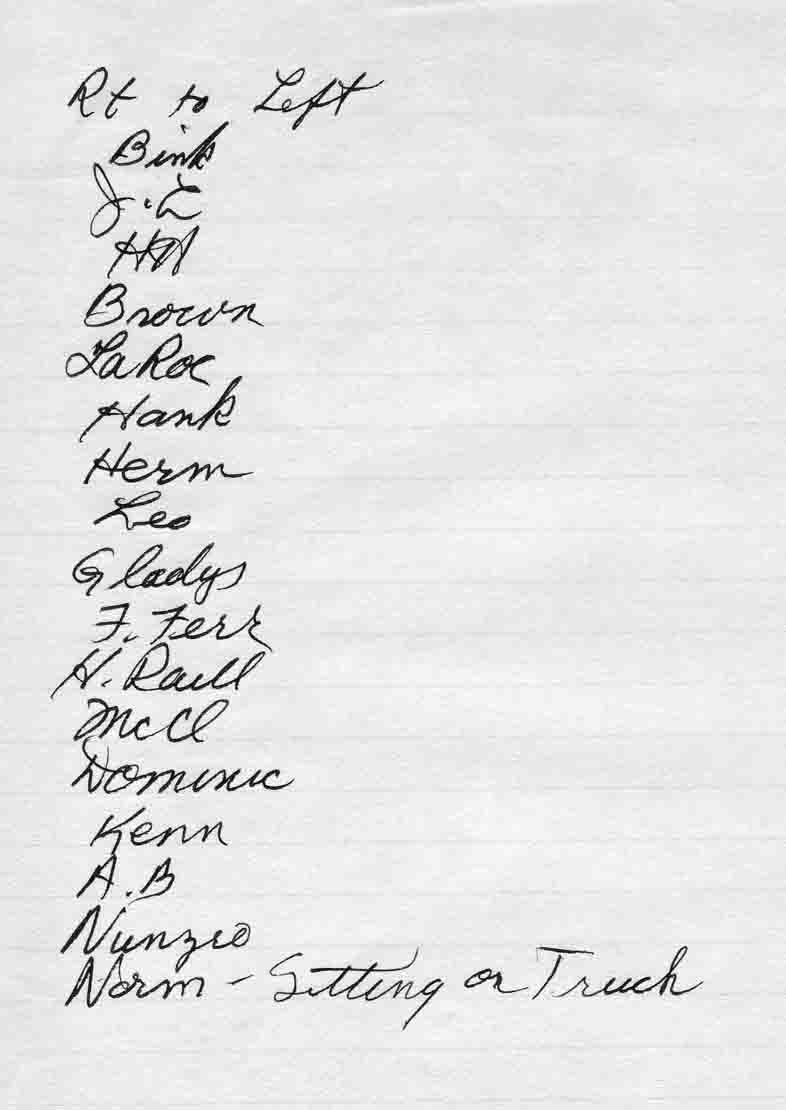 Rt to Left
Bink
J.L
HA
Brown
LaRoc
Hank
Herm
Leo
Gladys
F. Ferr
H.
McCl
Dominic
Kenn
A.B
Nunzio
Norm - Sitting on Truck